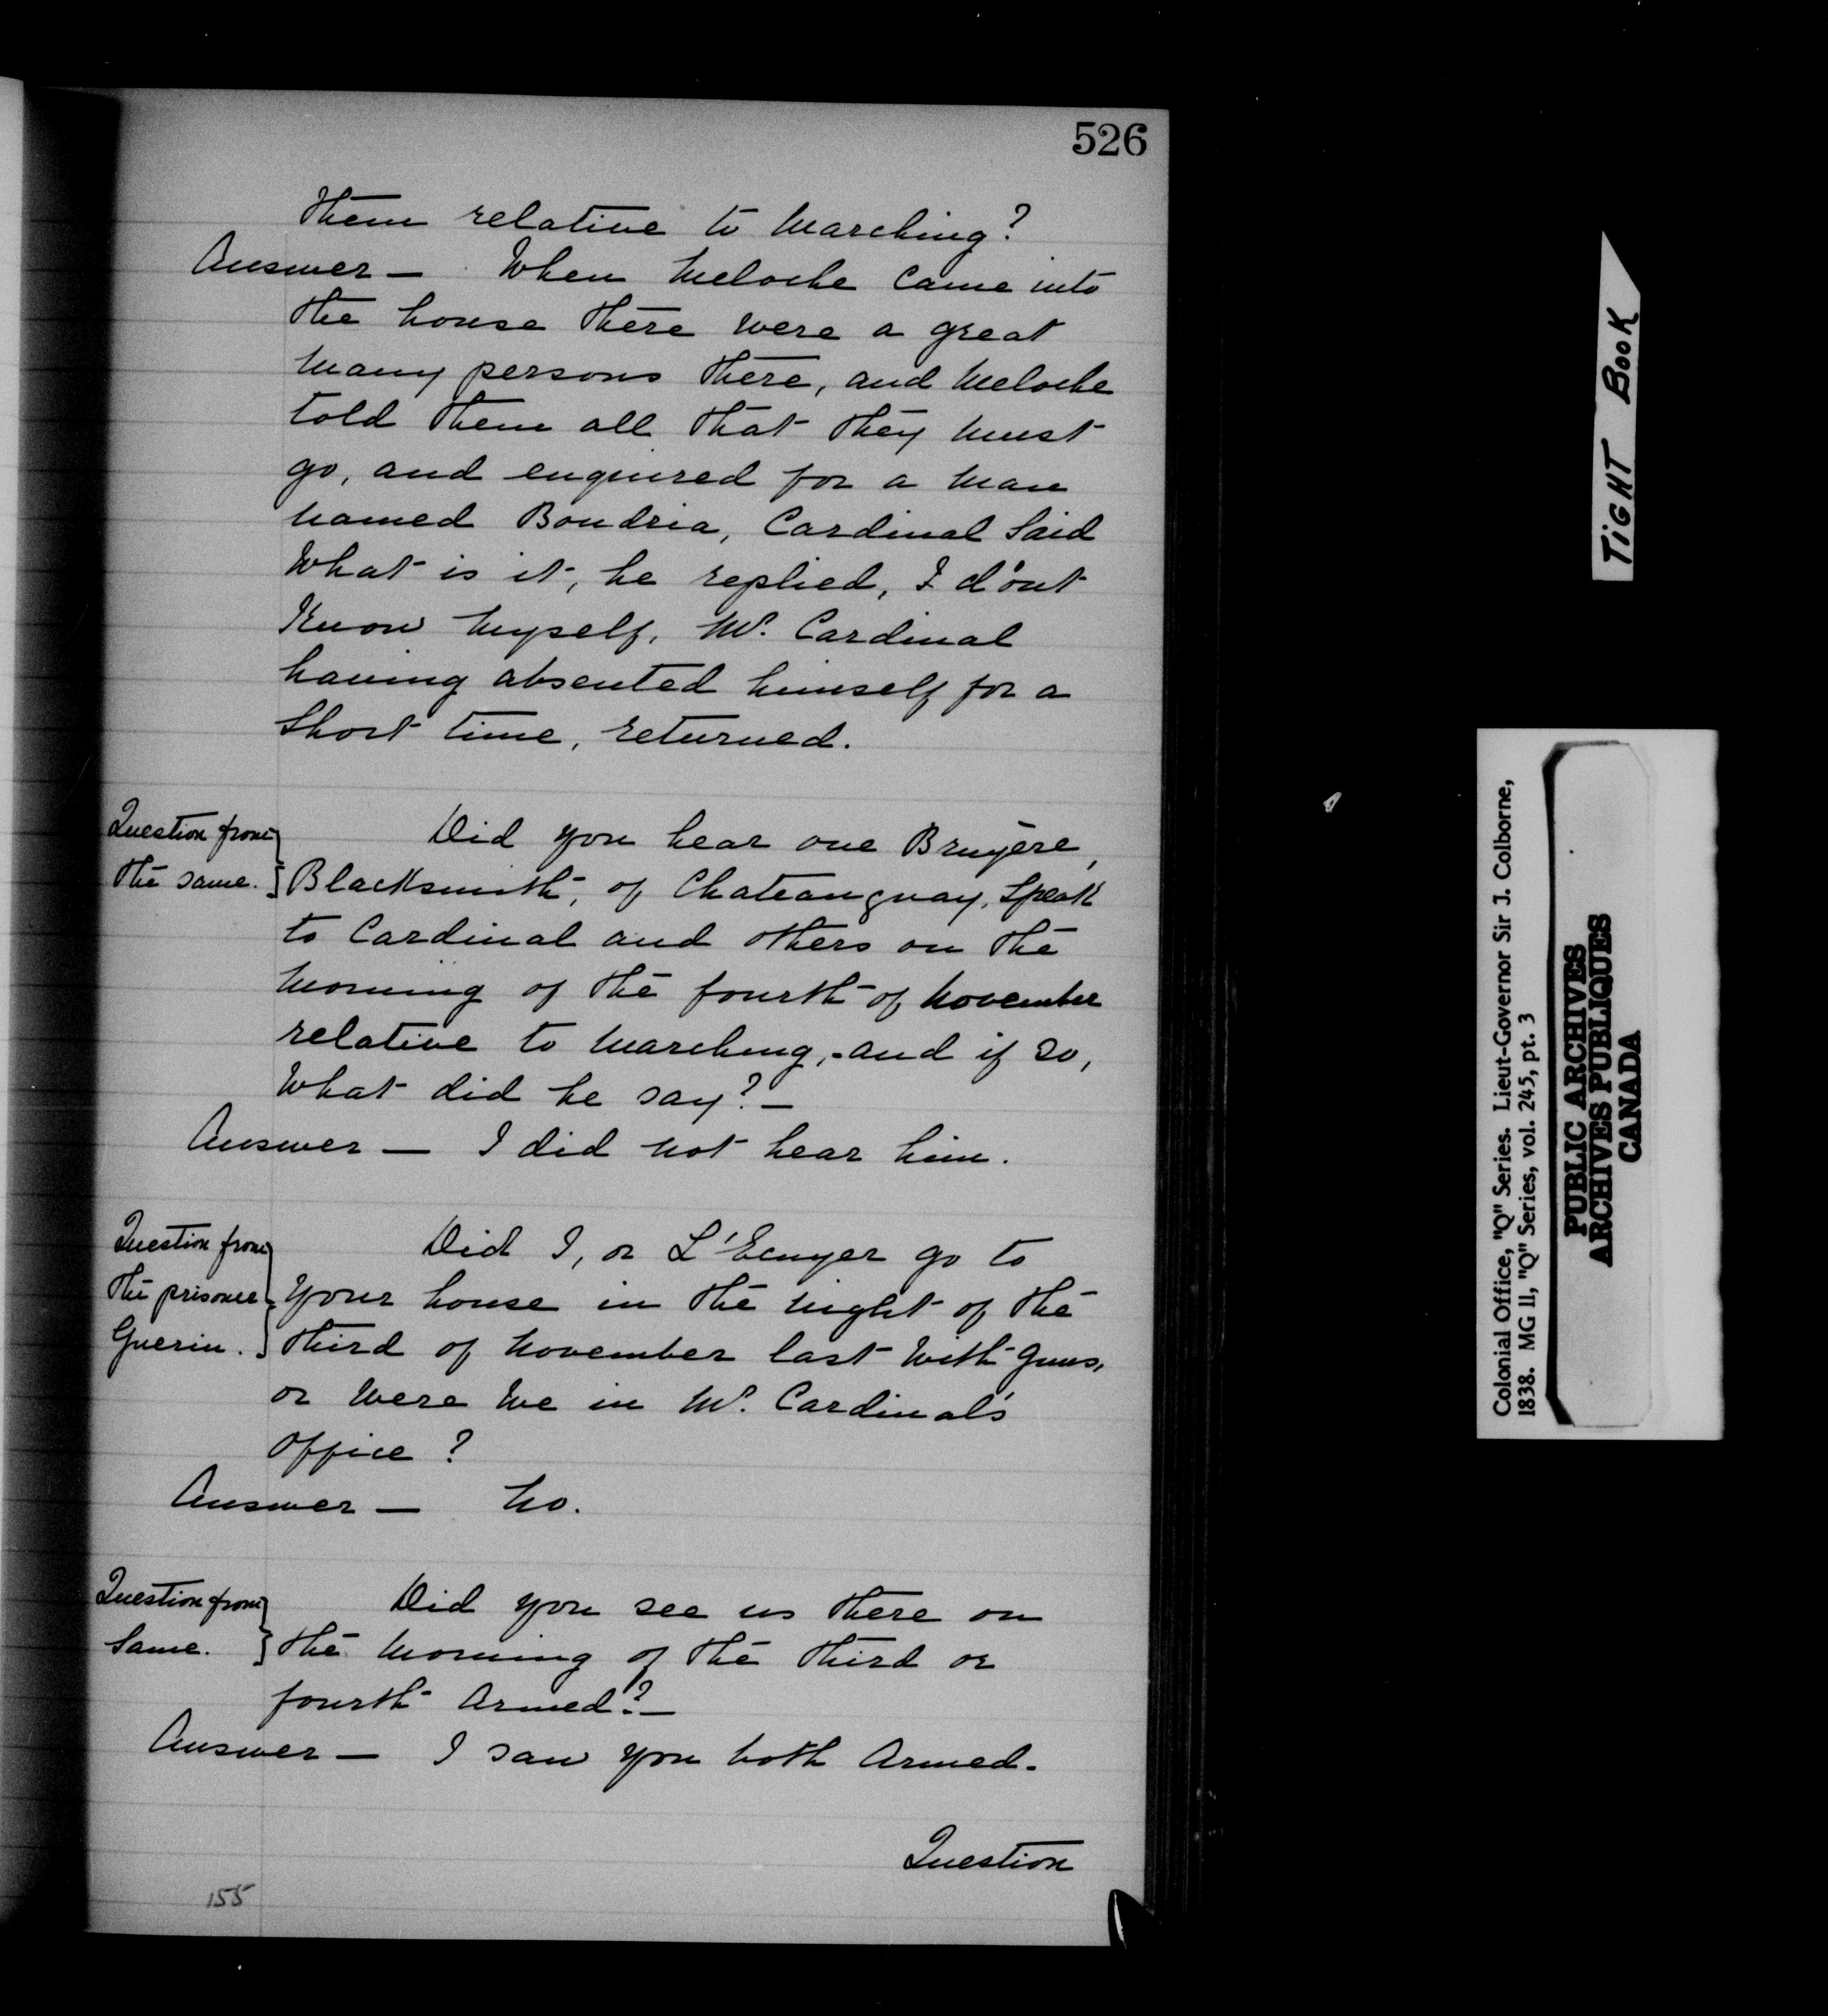 526
them relative to Marching?
Answer — When Meloche Came into
the house there were a great
Many persons there, and Meloche
told them all that they Must
go, and enquired for a Man
Named Boudria, Cardinal Said
What is it, he replied, I d'ont
Know Myself, Mr. Cardinal
having absented himself for a
Short time, returned.
Question from the same.
Did you hear one Bruyère,
Blacksmith, of Chateauguay, Speak
to Cardinal and others on the
Morning of the fourth of November
relative to Marching, and if so,
What did he say? —
Answer — I did not hear him.
Question from the prisoner Guerin.
Did I, or L'Ecuyer go to
Your house in the Night of the
third of November last With Guns,
or Were We in Mr. Cardinal's
Office?
Answer — No.
Question from Same.
Did you see us there on
the Morning of the third or
fourth Armed? —
Answer — I saw you both Armed.
Question
155
TIGHT BOOK
Colonial Office, "Q" Series. Lieut-Governor Sir J. Colborne,
1838. MG 11, "Q" Series, vol. 245, pt. 3
PUBLIC ARCHIVES
ARCHIVES PUBLIQUES
CANADA